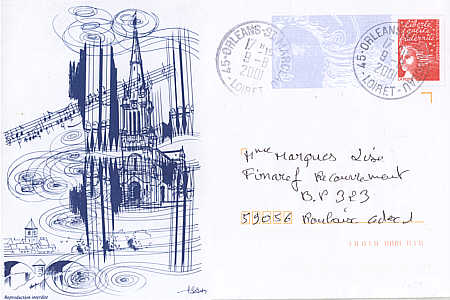 45-ORLEANS-ST MARCEAU
17 H
8-8
2001
LOIRET
45-ORLEANS-ST MARCEAU
17 H
8-8
2001
LOIRET
Liberté
égalité
fraternité
Mme Marques Lise
Finaref Recouvrement
B.P 323
59056 Roubaix cedex 1
Reproduction interdite